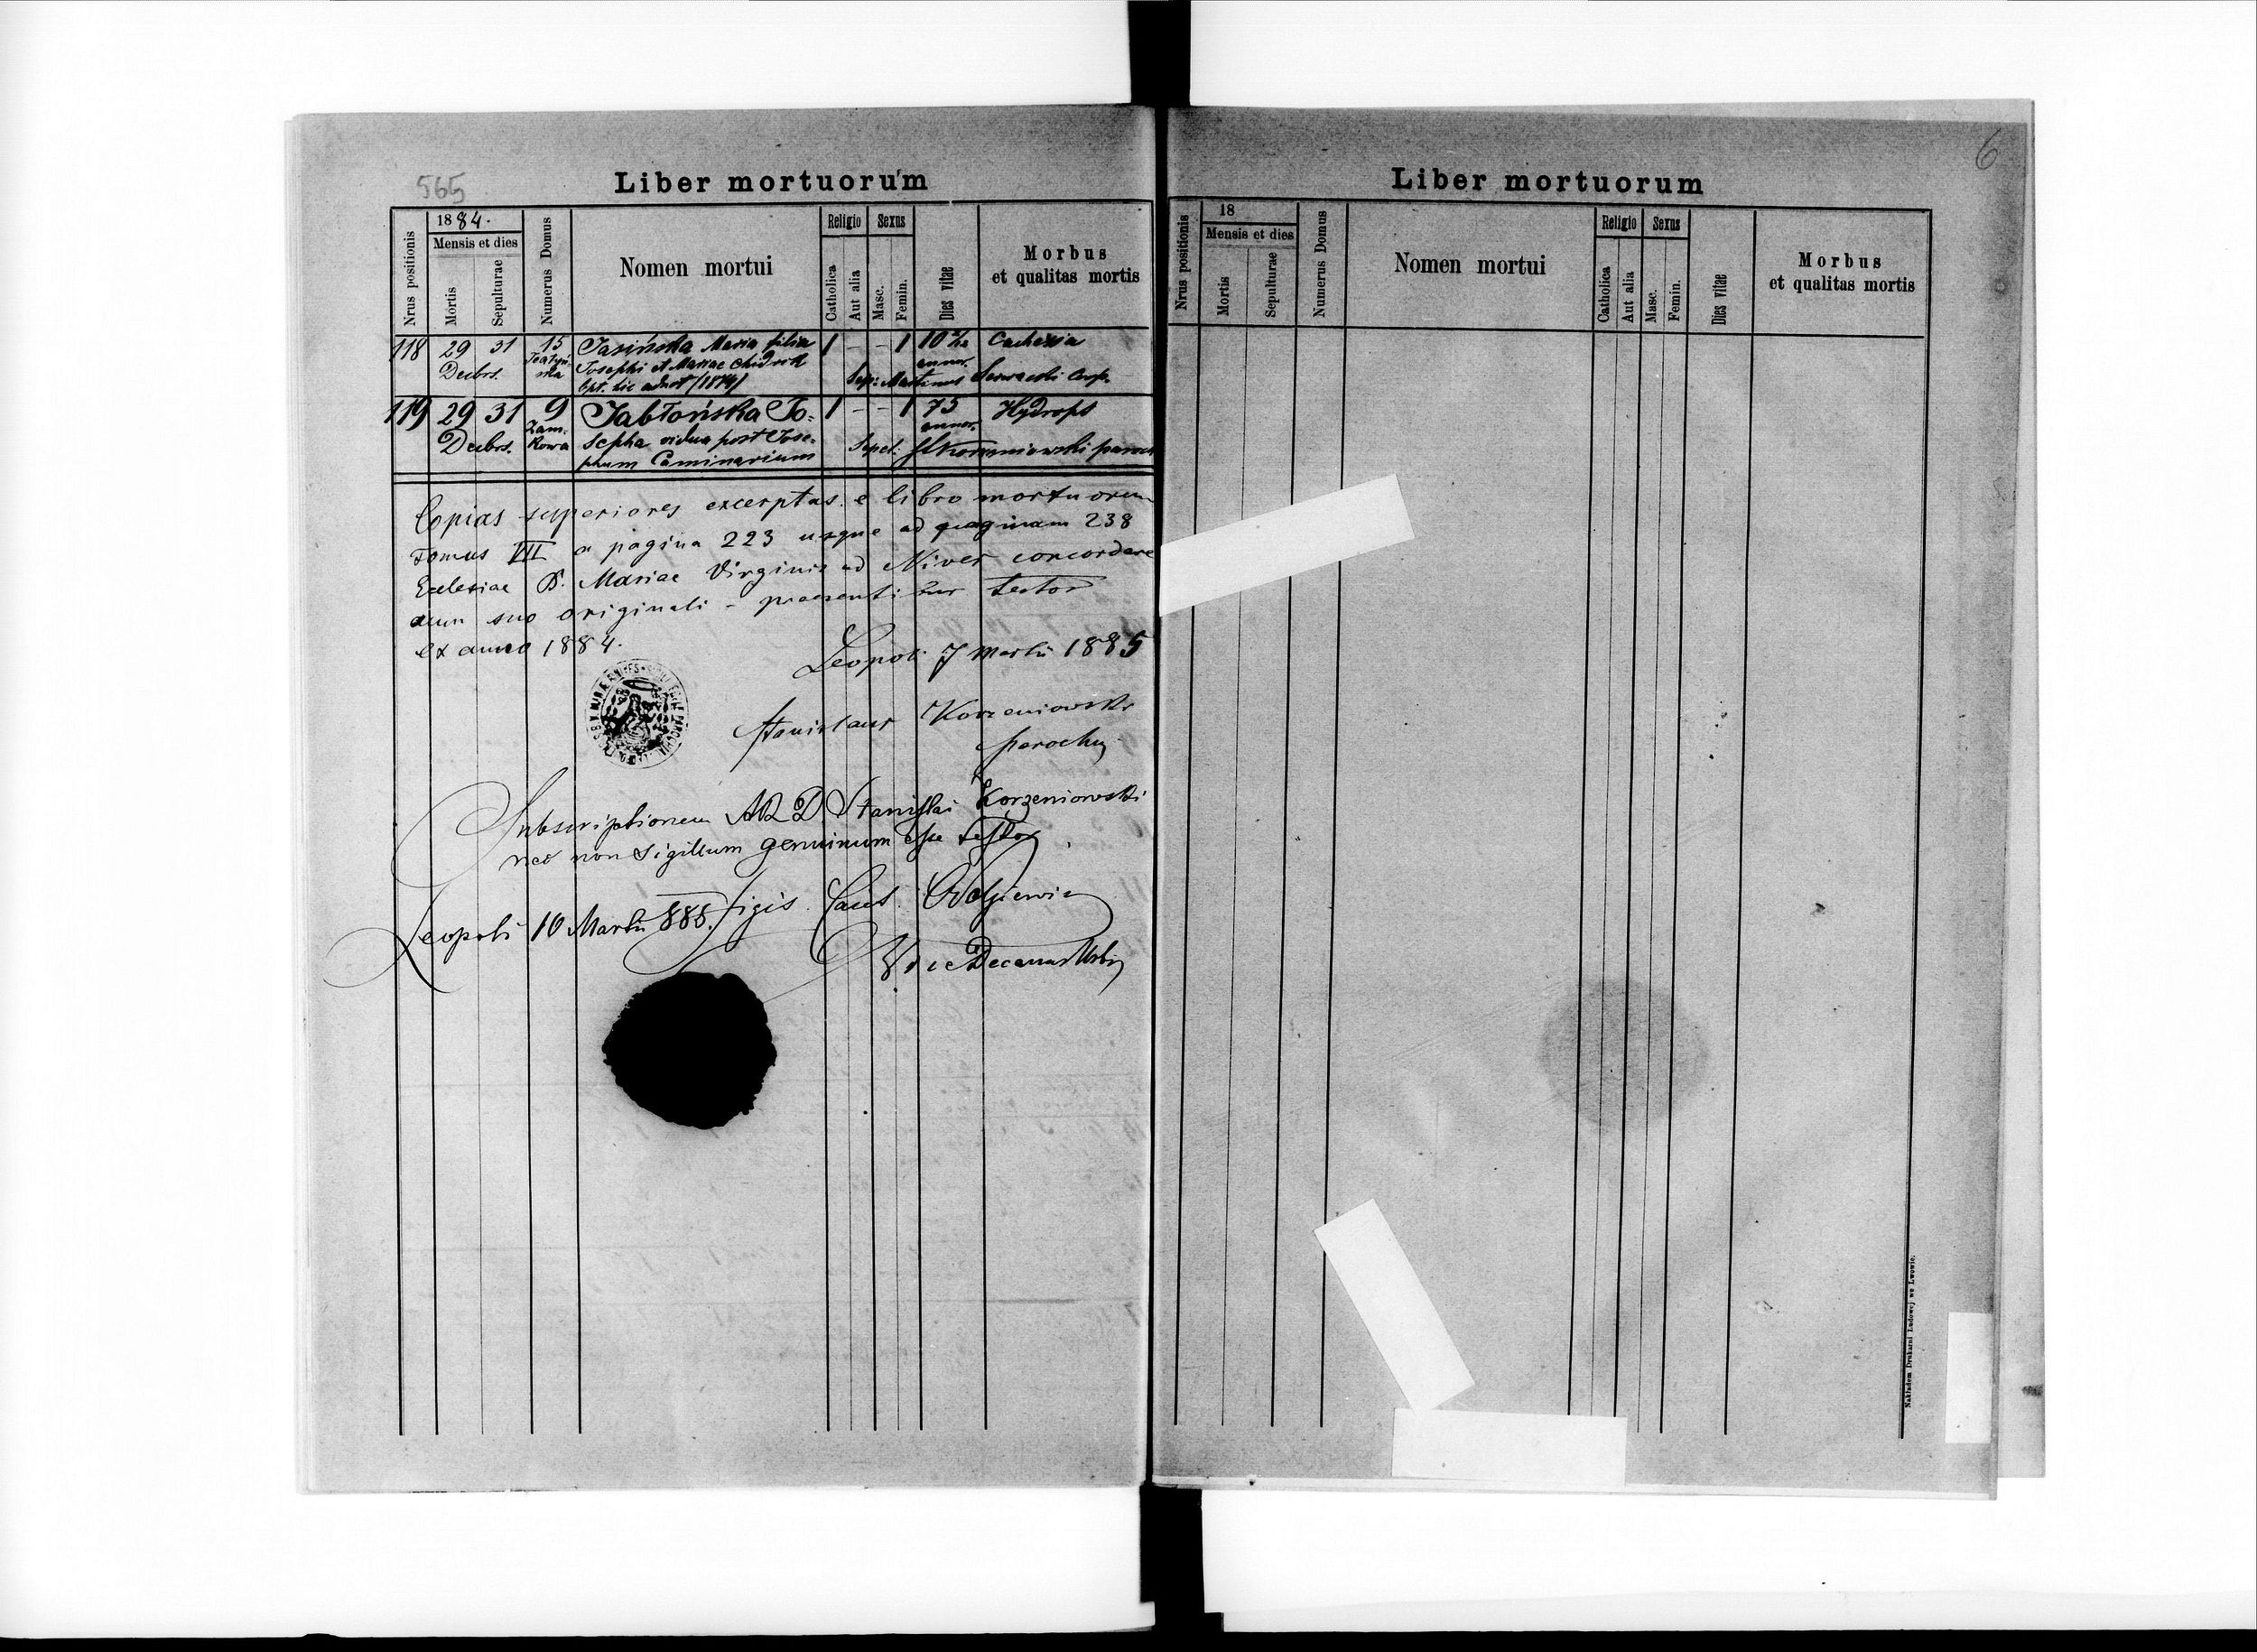 565
Liber mortuorum
Nrus positionis
1884.
Mensis et dies
Mortis
Sepulturae
Numerus Domus
Nomen mortui
Religio
Catholica
Aut alia
Sexus
Masc.
Femin.
Dies vitae
Morbus
et qualitas mortis
118 29 31 15 Jasińska Maria filia 1 - - 1 10 Cachexia
Decbrs. Teatyń- Josephi et Mariae annor.
ska bpt. hic adnot /1874/ Sep: Martinus Coop.
119 29 31 9 Jabłońska Jo- 1 - - 1 75 Hydrops
Decbrs. Zam- sepha vidua post Jose- annor.
kowa phum Caminarium Sepel: StKorzeniowski paroch
Copias superiores excerptas e libro mortuorum
Tomus VII a pagina 223 usque ad paginam 238
Ecclesiae B. Mariae Virginis ad Nives concordare
cum suo originali - praesentibus testor
ex anno 1884.
Leopoli 7 Martii 1885
Stanislaus Korzeniowski
parochus
Subscriptionem ARD. Stanislai Korzeniowski
nec non sigillum genuinum esse testor
Leopoli 10 Martii 885.
Vice Decanus Urbis
6
Liber mortuorum
Nrus positionis
18
Mensis et dies
Mortis
Sepulturae
Numerus Domus
Nomen mortui
Religio
Catholica
Aut alia
Sexus
Masc.
Femin.
Dies vitae
Morbus
et qualitas mortis
Nakładem Drukarni Ludowej we Lwowie.